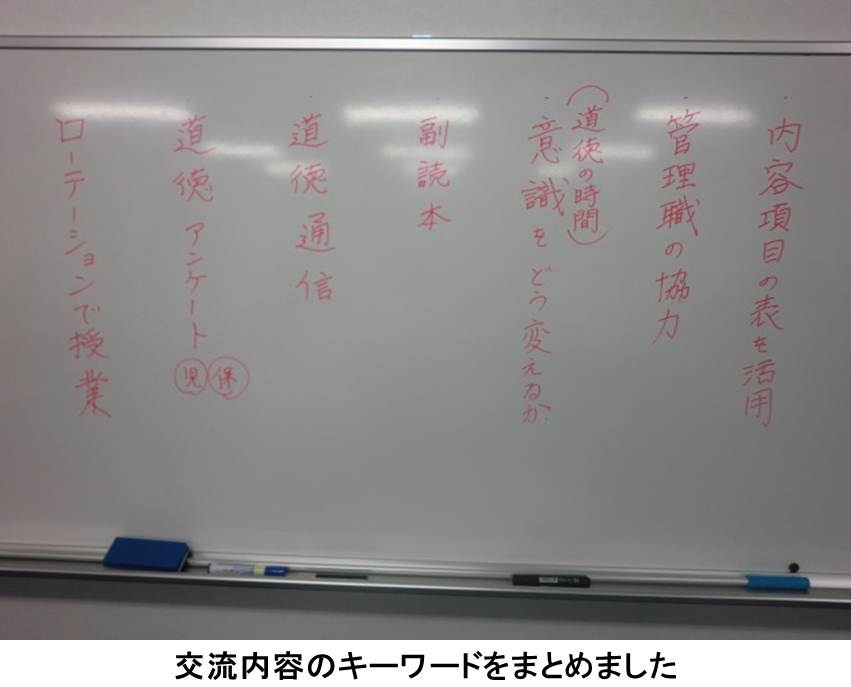 ・内容項目の表を活用
・管理職の協力
(道徳の時間)
・意識をどう変えるか
・副読本
・道徳通信
・道徳アンケート 児 保
・ローテーションで授業
交流内容のキーワードをまとめました